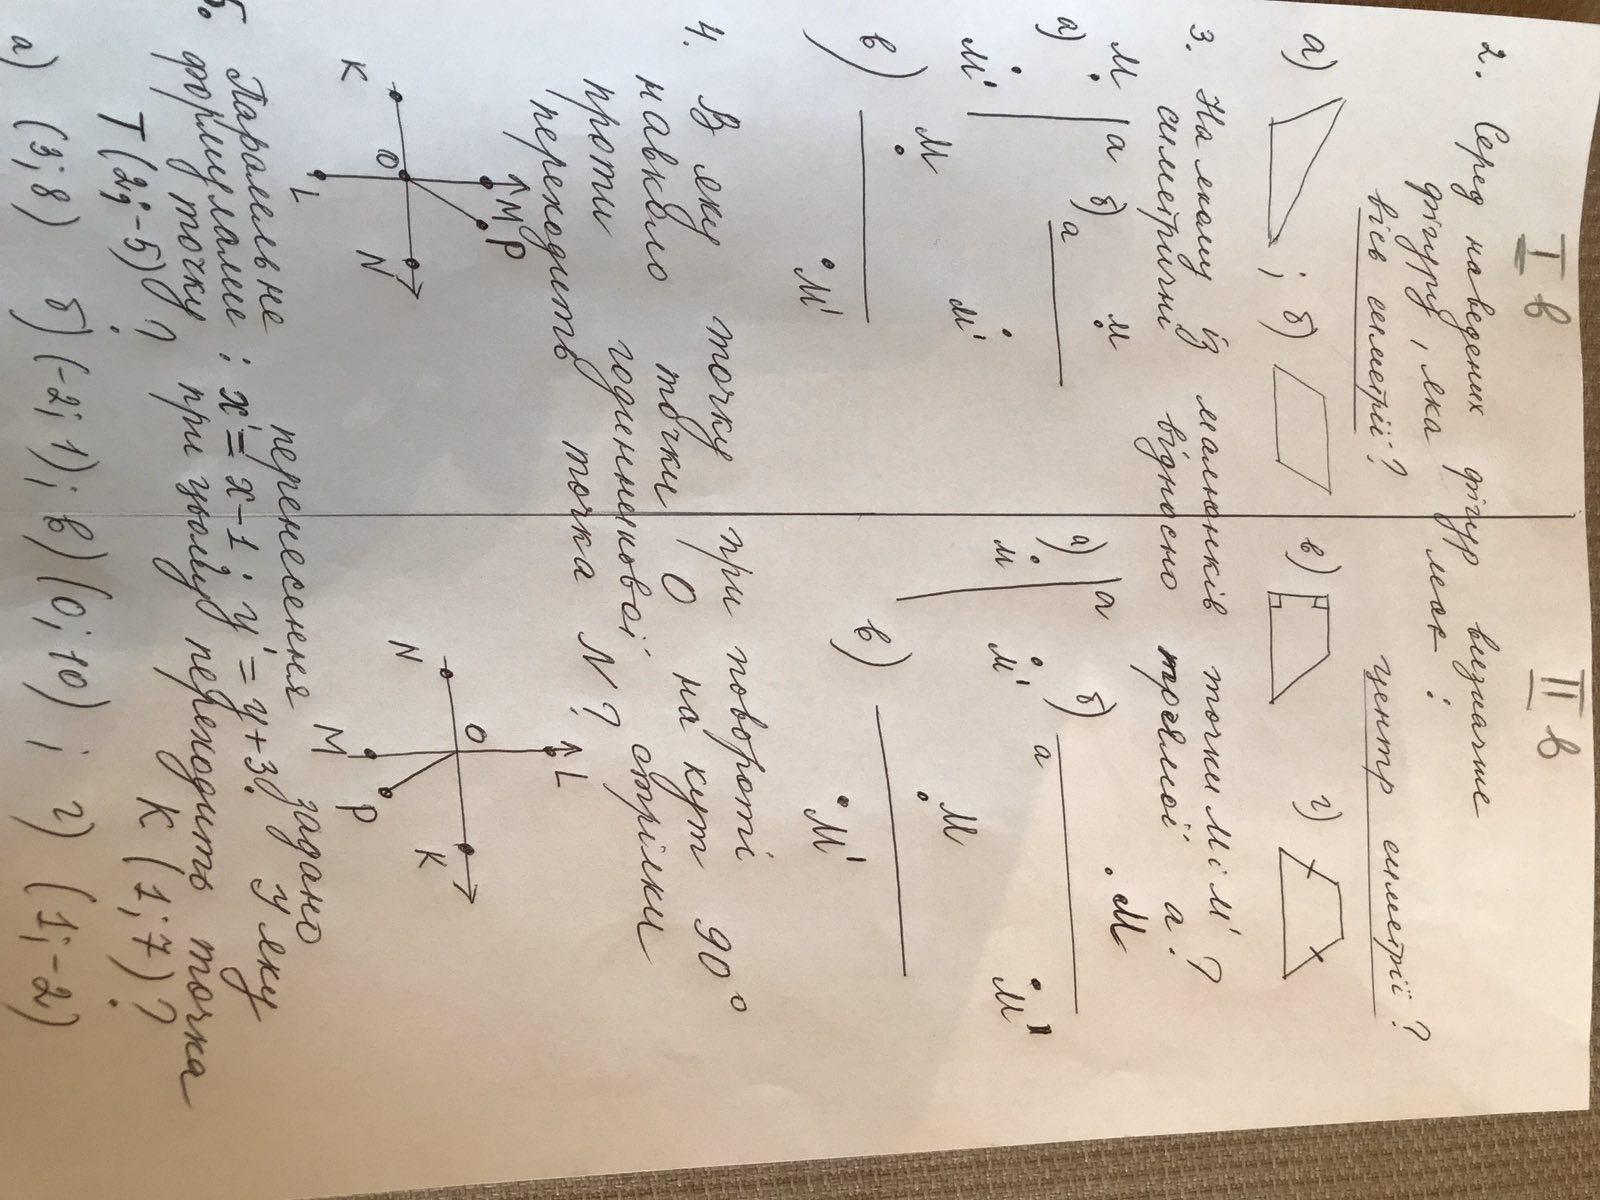 I в II в
2. Серед наведених фігур визначте
фігуру, яка має:
вісь симетрії? центр симетрії?
а) ; б) в) г)
3. На якому із малюнків точки М і М' ?
симетричні відносно прямої а?
М а б) М а) а б) М
а) а М а
М' М' М М' М'
в) М в) М
М' М'
4. В яку точку при повороті 90°
навколо точки О на кут
проти годинникової стрілки
переходить точка N?
M P L
K O N N O K
L M P
5. Паралельне перенесення задано
формулами: x' = x-1; y' = y+3. У яку
точку при цьому переходить точка
T (2; -5)? K (1; 7)?
а) (3; 8) б) (-2; 1); в) (0; 10) ; г) (1; -2)